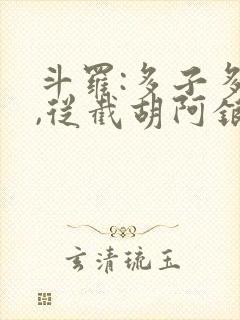 斗羅:多子多
,從截胡阿銀
玄清琉玉